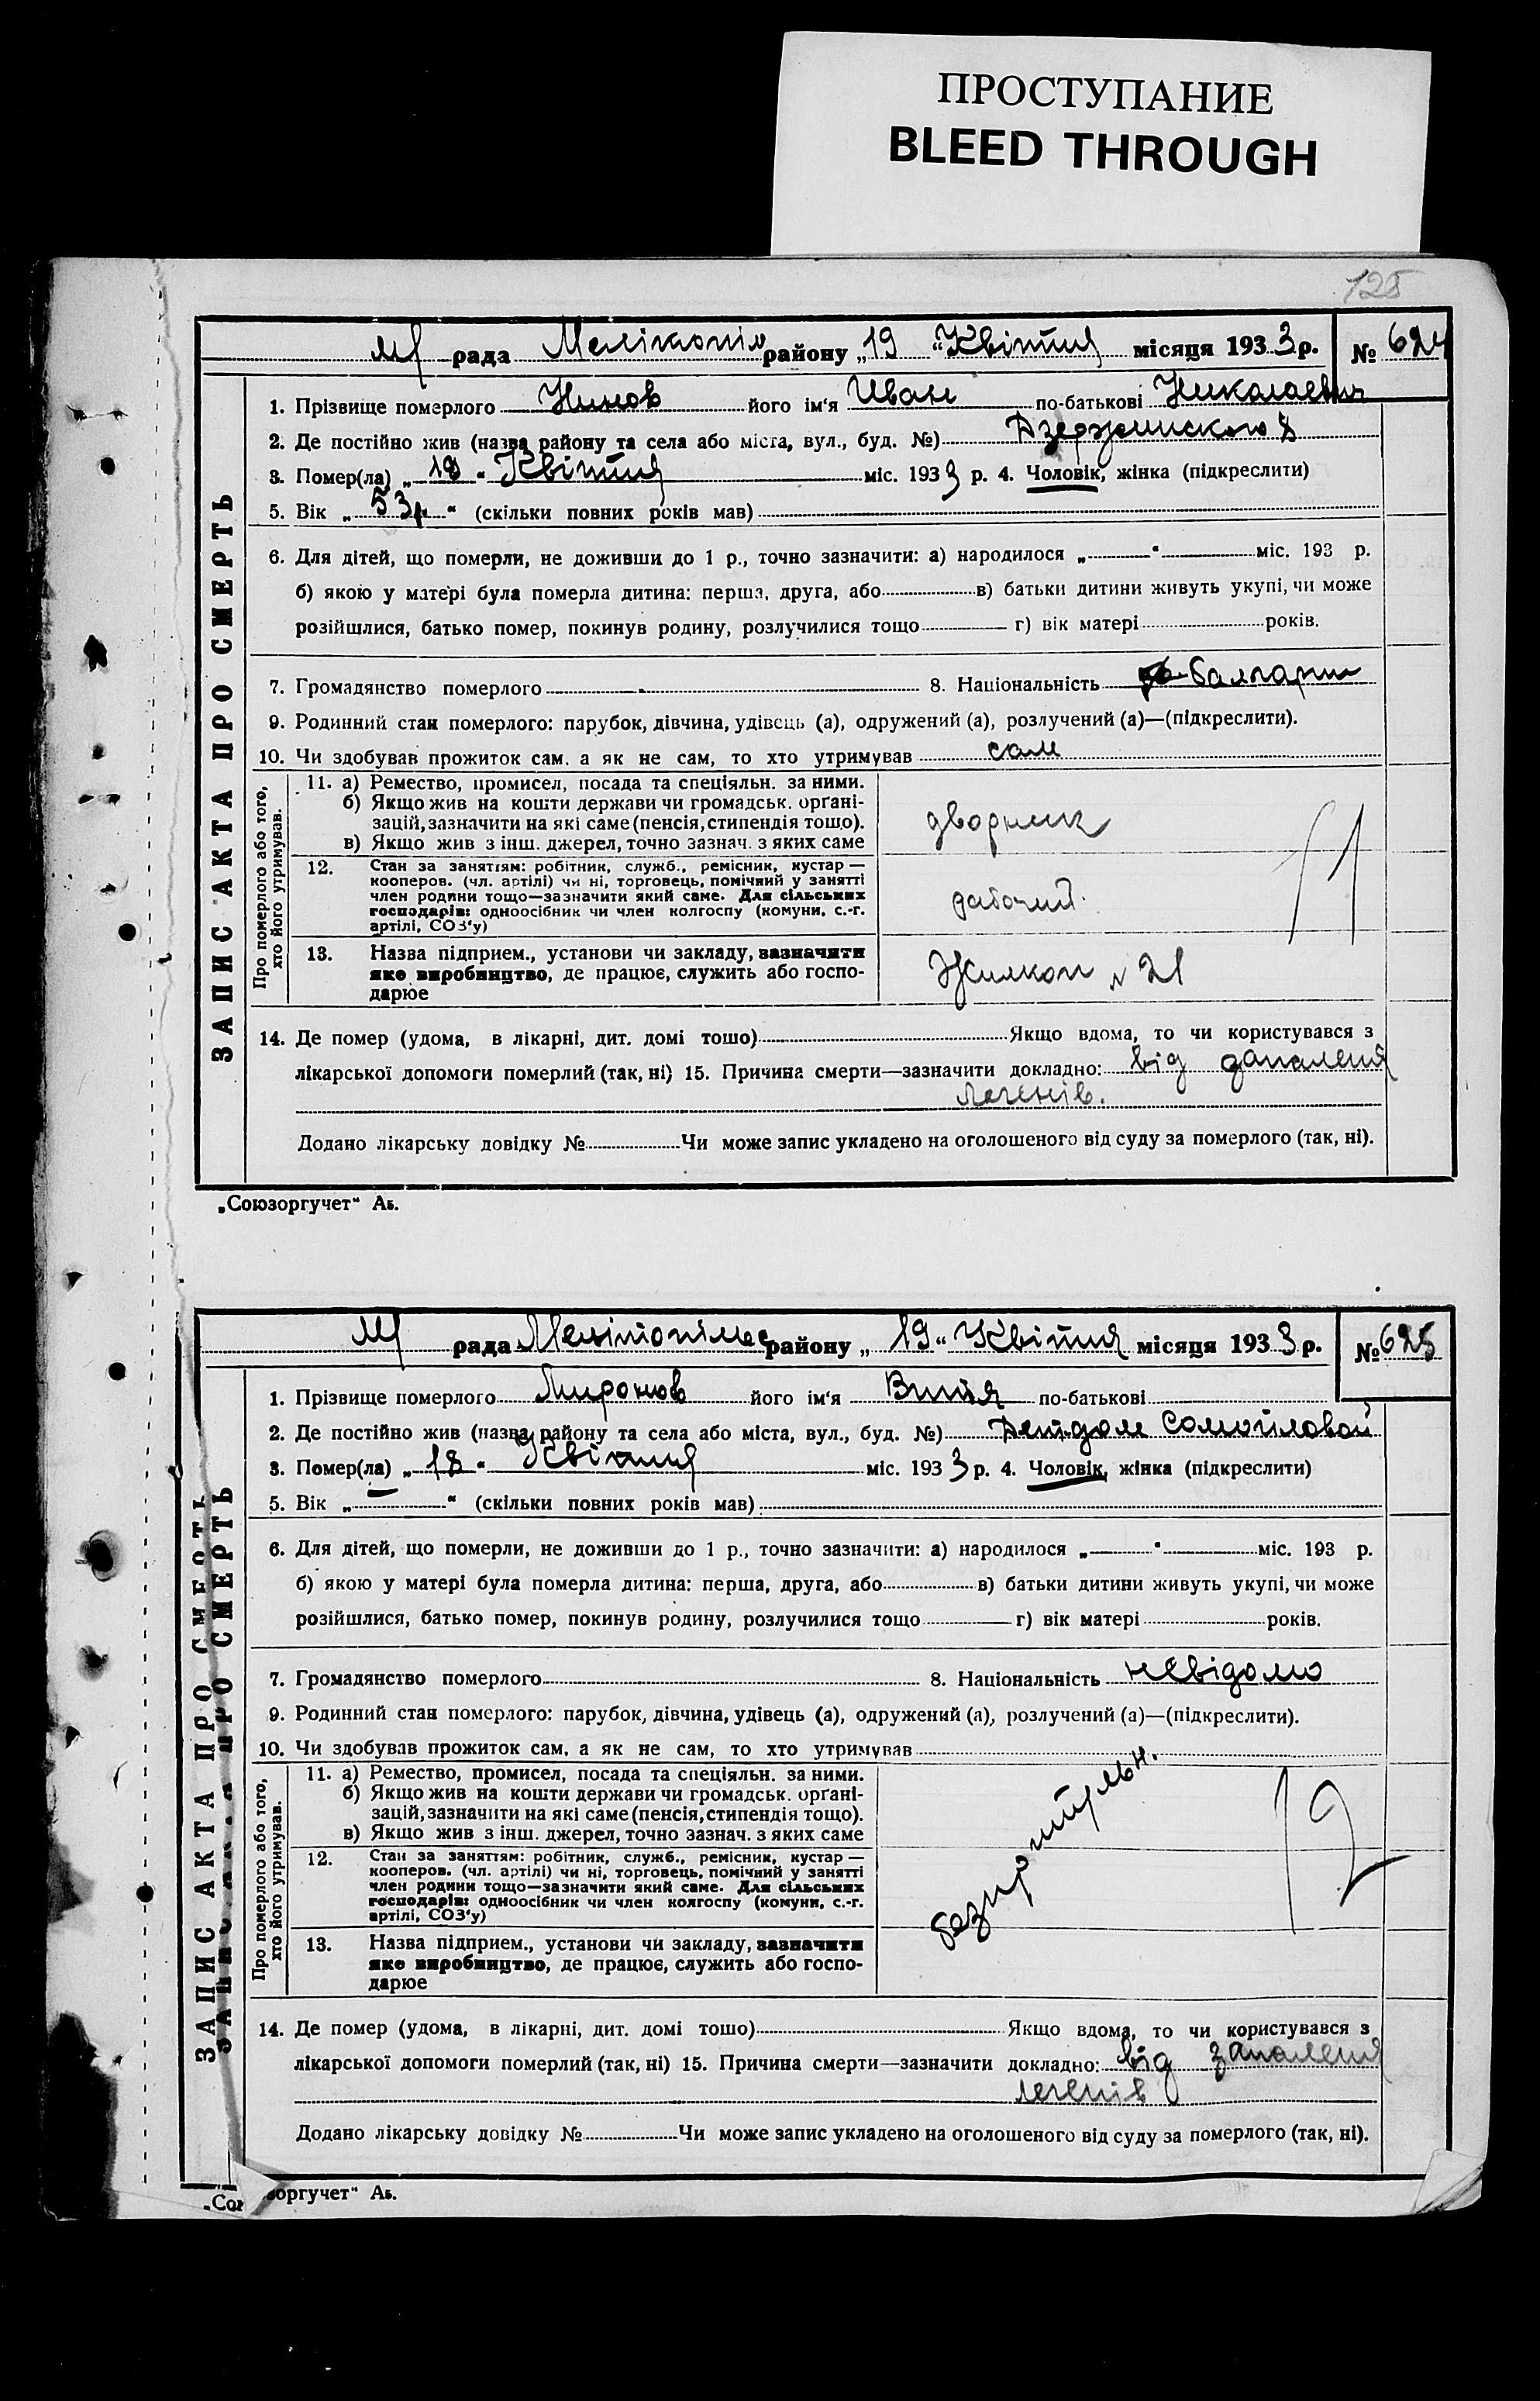 ПРОСТУПАНИЕ
BLEED THROUGH
125
рада Мелітопіл району „19“ Квітня місяця 1933 р. № 624
ЗАПИС АКТА ПРО СМЕРТЬ
1. Прізвище померлого Нинов його ім'я Иван по-батькові Николаевич
2. Де постійно жив (назва району та села або міста, вул., буд. №) Дзержинского 8
3. Помер(ла) „18“ Квітня міс. 1933 р. 4. Чоловік, жінка (підкреслити)
5. Вік „53р.“ (скільки повних років мав)
6. Для дітей, що померли, не доживши до 1 р., точно зазначити: а) народилося „ “ міс. 193 р.
б) якою у матері була померла дитина: перша, друга, або в) батьки дитини живуть укупі, чи може
розійшлися, батько помер, покинув родину, розлучилися тощо г) вік матері років.
7. Громадянство померлого 8. Національність болгарин
9. Родинний стан померлого: парубок, дівчина, удівець (а), одружений (а), розлучений (а)—(підкреслити).
10. Чи здобував прожиток сам, а як не сам, то хто утримував сам
Про померлого або того, хто його утримував.
11. а) Ремество, промисел, посада та спеціяльн. за ними.
б) Якщо жив на кошти держави чи громадськ. орґані-
зацій, зазначити на які саме (пенсія, стипендія тощо).
в) Якщо жив з інш. джерел, точно зазнач. з яких саме
дворник
11
12. Стан за заняттям: робітник, служб., ремісник, кустар—
кооперов. (чл. артілі) чи ні, торговець, помічний у занятті
член родини тощо—зазначити який саме. Для сільських
господарів: одноосібник чи член колгоспу (комуни, с.-г.
артілі, СОЗ'у)
рабочий.
13. Назва підприєм., установи чи закладу, зазначити
яке виробництво, де працює, служить або госпо-
дарює
Жилкоп № 21
14. Де помер (удома, в лікарні, дит. домі тошо) Якщо вдома, то чи користувався з
лікарської допомоги померлий (так, ні) 15. Причина смерти—зазначити докладно: від запаленя
легенів.
Додано лікарську довідку № Чи може запис укладено на оголошеного від суду за померлого (так, ні).
„Союзоргучет“ Аь.
рада Мелітопільс району „19“ Квітня місяця 1933 р. № 625
ЗАПИС АКТА ПРО СМЕРТЬ
ЗАПИС АКТА ПРО СМЕРТЬ
1. Прізвище померлого Миронов його ім'я Витя по-батькові
2. Де постійно жив (назва району та села або міста, вул., буд. №) Детдом Самойловой
3. Помер(ла) „18“ Квітня міс. 1933 р. 4. Чоловік, жінка (підкреслити)
5. Вік „—“ (скільки повних років мав)
6. Для дітей, що померли, не доживши до 1 р., точно зазначити: а) народилося „ “ міс. 193 р.
б) якою у матері була померла дитина: перша, друга, або в) батьки дитини живуть укупі, чи може
розійшлися, батько помер, покинув родину, розлучилися тощо г) вік матері років.
7. Громадянство померлого 8. Національність невідомо
9. Родинний стан померлого: парубок, дівчина, удівець (а), одружений (а), розлучений (а)—(підкреслити).
10. Чи здобував прожиток сам, а як не сам, то хто утримував
Про померлого або того, хто його утримував.
11. а) Ремество, промисел, посада та спеціяльн. за ними.
б) Якщо жив на кошти держави чи громадськ. орґані-
зацій, зазначити на які саме (пенсія, стипендія тощо).
в) Якщо жив з інш. джерел, точно зазнач. з яких саме
12
12. Стан за заняттям: робітник, служб., ремісник, кустар—
кооперов. (чл. артілі) чи ні, торговець, помічний у занятті
член родини тощо—зазначити який саме. Для сільських
господарів: одноосібник чи член колгоспу (комуни, с.-г.
артілі, СОЗ'у)
13. Назва підприєм., установи чи закладу, зазначити
яке виробництво, де працює, служить або госпо-
дарює
14. Де помер (удома, в лікарні, дит. домі тошо) Якщо вдома, то чи користувався з
лікарської допомоги померлий (так, ні) 15. Причина смерти—зазначити докладно: від запаленя
легенів
Додано лікарську довідку № Чи може запис укладено на оголошеного від суду за померлого (так, ні).
„Сог оргучет“ Аь.